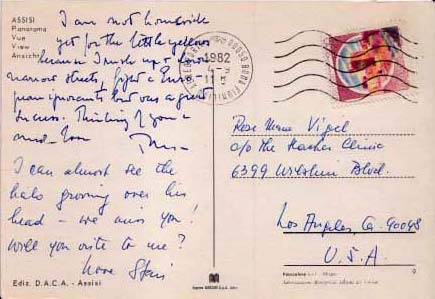 ASSISI
Panorama
Vue
View
Ansicht
I am not homesick
yet for the little yellow
because I rush up & down
narrow streets, fight &
but was a great
success. Thinking of you &
I can almost see the
halo growing over his
head – we miss you!
Will you write to me?
Love
Ediz. D.A.C.A. - Assisi
1982
Rose Marie Vigel
c/o the Hacker Clinic
6399 Wilshire Blvd.
Los Angeles, Ca. 90048
U.S.A.